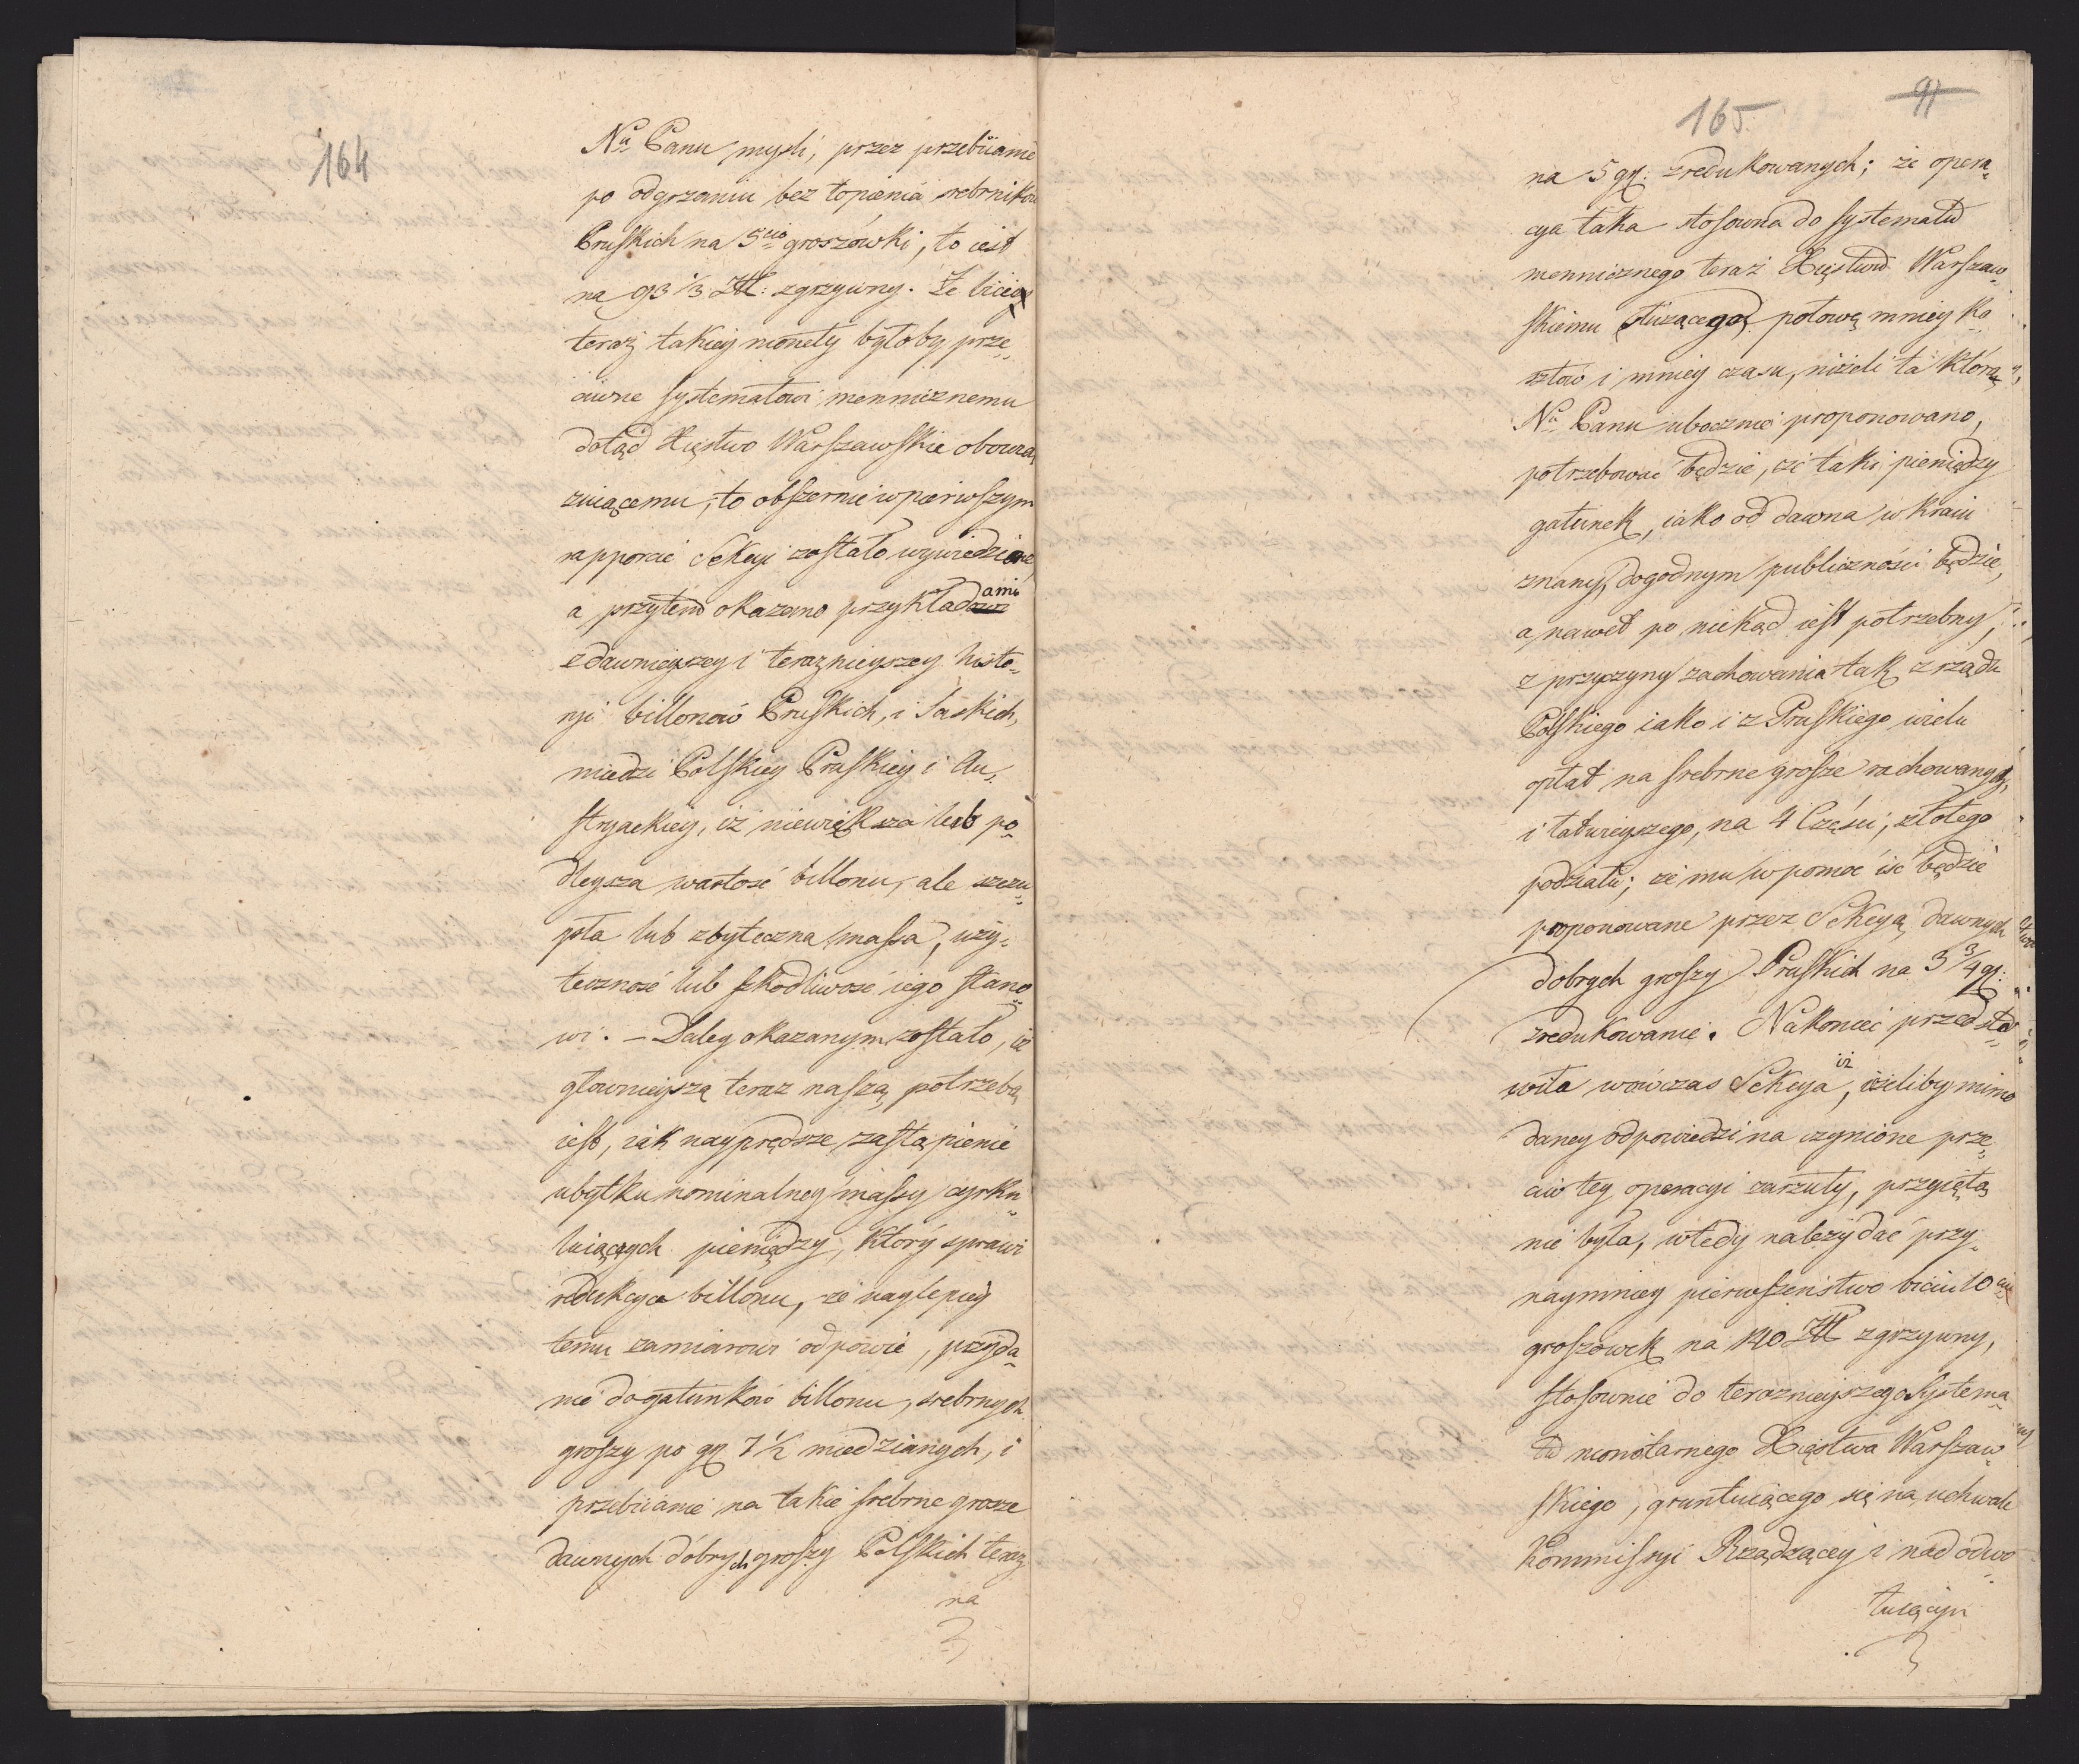 164
Na Panu myśli, przez przebiianie
po odgrzaniu bez topienia srebrników
Pruskich na 5cio groszówki, to iest
na 93 1/3 Zł: zgrzywny. Że bicie
teraz takiey monety byłoby prze„
ciwne systematowi mennicznemu
dotąd Xięstwo Warszawskie obowią„
zuiącemu, to obszernie w pierwszym
rapporcie Sekcyi zostało wywiedzione
a przytem okazano przykładami
z dawnieyszey i teraznieyszey histo„
ryi billonów Pruskich, i Saskich,
miedzi Polskiey Pruskiey i Au„
stryackiey, iż niewiększa lub po„
dleysza wartość billonu, ale szczu„
pła lub zbyteczna massa, uży„
teczność lub szkodliwość iego stano„
wi. – Daley okazanym zostało, iż
głownieyszą teraz naszą potrzebą
iest, iak nayprędsze zastąpienie
ubytku nominalney massy cyrku„
luiących pieniędzy, który sprawi
redukcya billonu, że naylepiey
temu zamiarowi odpowie, przyda„
nie do gatunków billonu, srebrnych
groszy po gr 7 1/2 miedzianych, i
przebiianie na takie srebrne grosze
dawnych dobrych groszy Polskich teraz
na
165
91
na 5 gr. zredukowanych; że opera„
cya taka stosowna do systematu
mennicznego teraz Xięstwu Warszaw„
skiemu służącego, połowę mniey ko„
sztów i mniey czasu, niżeli ta którą
Na Panu ubocznie proponowano,
potrzebować będzie, że taki pieniędzy
gatunek, iako od dawna w kraiu
znany, dogodnym publiczności będzie,
a nawet po niekąd iest potrzebny,
z przyczyny zachowania tak z rządu
Polskiego iako i z Pruskiego wielu
opłat na srebrne grosze rachowanych,
i łatwieyszego, na 4 Części, złotego
podziału; że mu w pomoc iść będzie
proponowane przez Sekcyą dawnych
dobrych groszy Pruskich na 3 3/4 gr:
zredukowanie. Nakoniec przedsta„
wiła wówczas Sekcya iż, ieżeliby mimo
daney odpowiedzi na czynione prze„
ciw tey operacyi zarzuty, przyiętą
nie była, wtedy należy dać przy„
naymniey pierwszeństwo biciu 10ciu
groszówek na 140 Zł zgrzywny,
stosownie do teraznieyszego Systema„
tu monetarnego Xięstwa Warszaw„
skiego, gruntuiącego się na uchwale
Kommissyi Rządzącey i nad odwo„
łuiącym